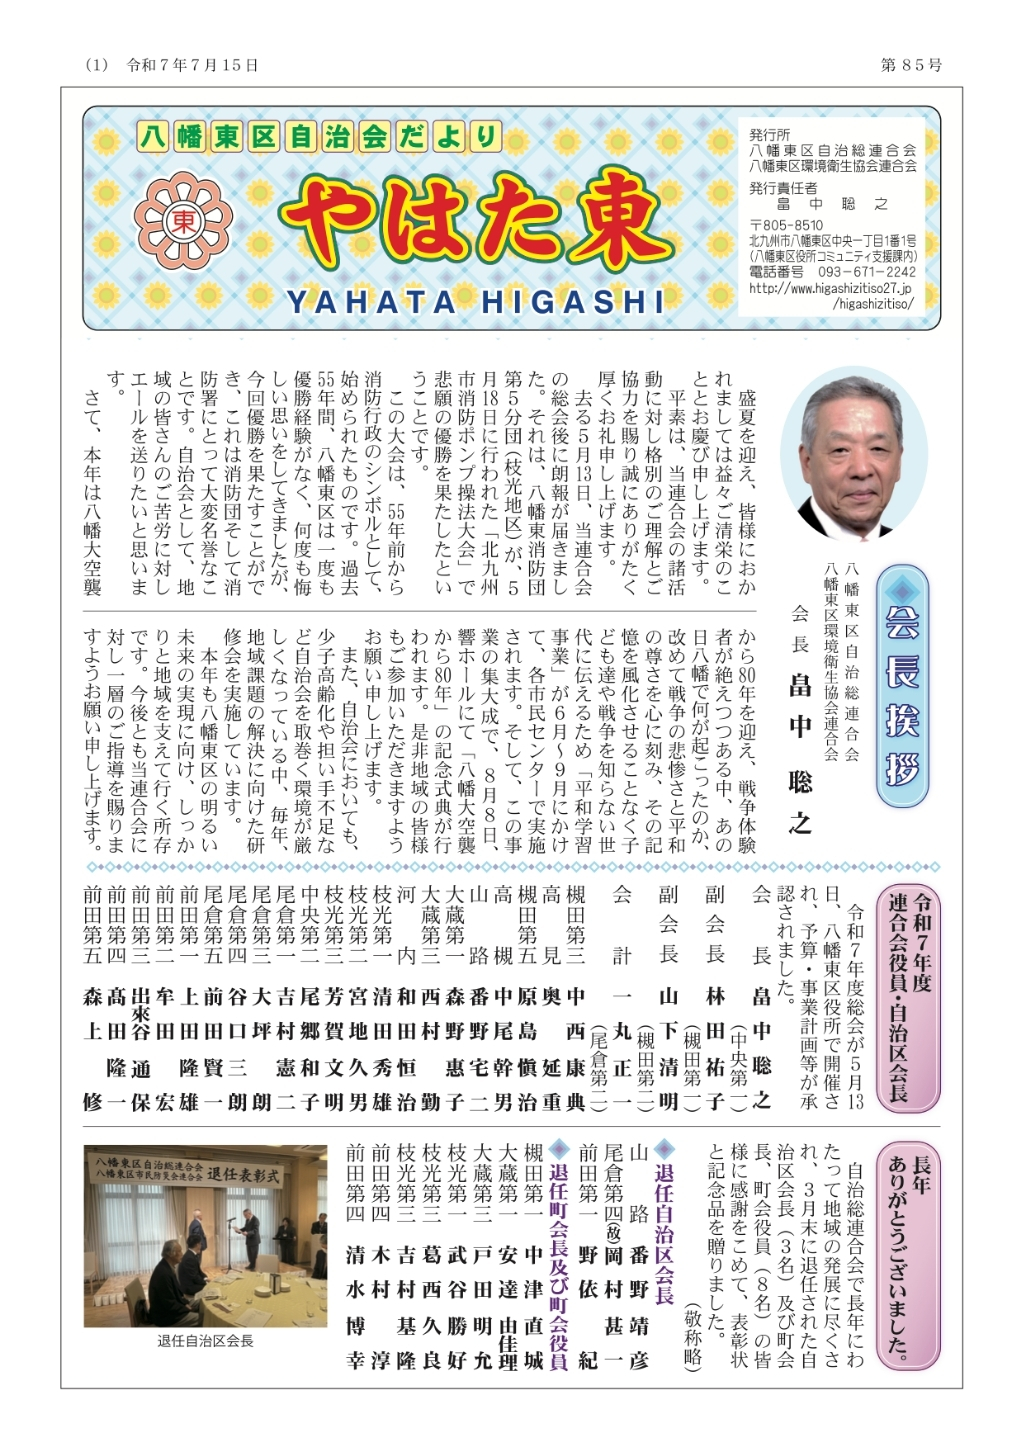 (1) 令和7年7月15日
第85号
八幡東区自治会だより
東
やはた東
YAHATA HIGASHI
発行所
八幡東区自治総連合会
八幡東区環境衛生協会連合会
発行責任者
畠中聡之
〒805-8510
北九州市八幡東区中央一丁目1番1号
(八幡東区役所コミュニティ支援課内)
電話番号 093-671-2242
http://www.higashizitiso27.jp
/higashizitiso/
会長挨拶
八幡東区自治総連合会
八幡東区環境衛生協会連合会
会長 畠中聡之
盛夏を迎え、皆様におか
れましては益々ご清栄のこ
ととお慶び申し上げます。
平素は、当連合会の諸活
動に対し格別のご理解とご
協力を賜り誠にありがたく
厚くお礼申し上げます。
去る5月13日、当連合会
の総会後に朗報が届きまし
た。それは、八幡東消防団
第5分団(枝光地区)が、5
月18日に行われた「北九州
市消防ポンプ操法大会」で
悲願の優勝を果たしたとい
うことです。
この大会は、55年前から
消防行政のシンボルとして、
始められたものです。過去
55年間、八幡東区は一度も
優勝経験がなく、何度も悔
しい思いをしてきましたが、
今回優勝を果たすことがで
き、これは消防団そして消
防署にとって大変名誉なこ
とです。自治会として、地
域の皆さんのご苦労に対し
エールを送りたいと思いま
す。
さて、本年は八幡大空襲
から80年を迎え、戦争体験
者が絶えつつある中、あの
日八幡で何が起こったのか、
改めて戦争の悲惨さと平和
の尊さを心に刻み、その記
憶を風化させることなく子
ども達や戦争を知らない世
代に伝えるため「平和学習
事業」が6月~9月にかけ
て、各市民センターで実施
されます。そして、この事
業の集大成で、8月8日、
響ホールにて「八幡大空襲
から80年」の記念式典が行
われます。是非地域の皆様
もご参加いただきますよう
お願い申し上げます。
また、自治会においても、
少子高齢化や担い手不足な
ど自治会を取巻く環境が厳
しくなっている中、毎年、
地域課題の解決に向けた研
修会を実施しています。
本年も八幡東区の明るい
未来の実現に向け、しっか
りと地域を支えて行く所存
です。今後とも当連合会に
対し一層のご指導を賜りま
すようお願い申し上げます。
令和7年度
連合会役員・自治区会長
令和7年度総会が5月13
日、八幡東区役所で開催さ
れ、予算・事業計画等が承
認されました。
会長 畠中聡之
(中央第一)
副会長 林田祐子
(槻田第一)
副会長 山下清明
(槻田第二)
会計 一丸正一
(尾倉第二)
槻田第三 中西康典
高見 奥延重
槻田第五 原島愼治
高槻 中尾幹男
山路 番野宅二
大蔵第一 森野惠子
大蔵第三 西村勤
河内 和田恒治
枝光第一 清田秀雄
宮地第二 宮地久男
枝光第三 芳賀文明
中央第二 尾郷和子
尾倉第一 吉村憲二
尾倉第三 大坪朗
尾倉第四 谷口三朗
尾倉第五 前田賢一
前田第一 上田隆雄
前田第二 牟田宏
前田第三 出來谷通保
前田第四 髙田隆一
前田第五 森上修
長年
ありがとうございました。
自治総連合会で長年にわ
たって地域の発展に尽くさ
れ、3月末に退任された自
治区会長(3名)及び町会
長、町会役員(8名)の皆
様に感謝をこめて、表彰状
と記念品を贈りました。
(敬称略)
退任自治区会長
山路 番野靖彦
尾倉第四(故)岡村甚一
前田第一 野依紀
退任町会長及び町会役員
槻田第一 中津直城
大蔵第一 安達由佳理
大蔵第三 戸田明允
枝光第一 武谷勝好
枝光第三 葛西久良
枝光第三 吉村基隆
前田第四 木村淳
前田第四 清水博幸
八幡東区自治総連合会
八幡東区市民防災会連合会
退任表彰式
退任自治区会長